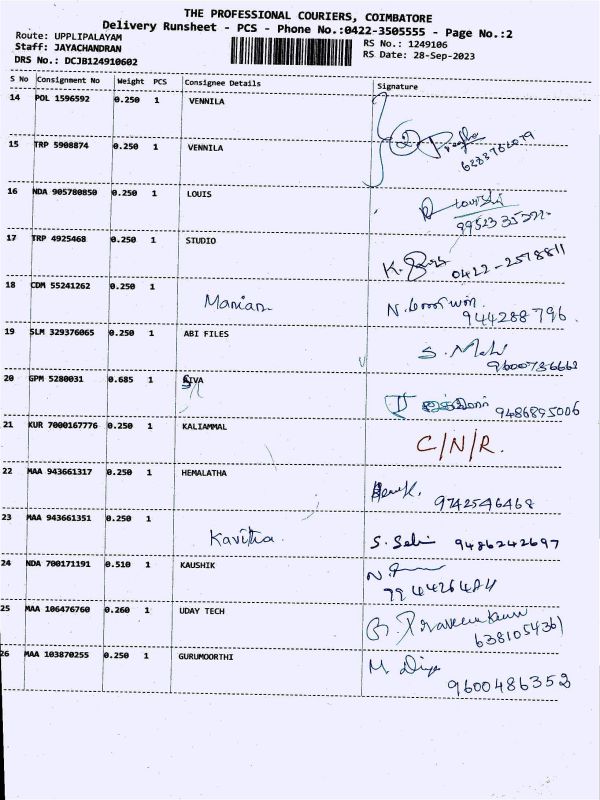 THE PROFESSIONAL COURIERS, COIMBATORE
Delivery Runsheet - PCS - Phone No.:0422-3505555 - Page No.:2
Route: UPPLIPALAYAM
RS No.: 1249106
Staff: JAYACHANDRAN
RS Date: 28-Sep-2023
DRS No.: DCJB124910602
S No Consignment No Weight PCS Consignee Details Signature
14 POL 1596592 0.250 1 VENNILA
15 TRP 5908874 0.250 1 VENNILA
16 NDA 905780850 0.250 1 LOUIS
17 TRP 4925468 0.250 1 STUDIO
0422-2578811
18 CDM 55241262 0.250 1 Manian
944288796
19 SLM 329376065 0.250 1 ABI FILES
9600736663
20 GPM 5280031 0.685 1 SIVA
9486895006
21 KUR 7000167776 0.250 1 KALIAMMAL C/N/R.
22 MAA 943661317 0.250 1 HEMALATHA
9742546468
23 MAA 943661351 0.250 1 Kavitha
9486242697
24 NDA 700171191 0.510 1 KAUSHIK
25 MAA 106476760 0.260 1 UDAY TECH
6381054361
26 MAA 103870255 0.250 1 GURUMOORTHI
9600486352